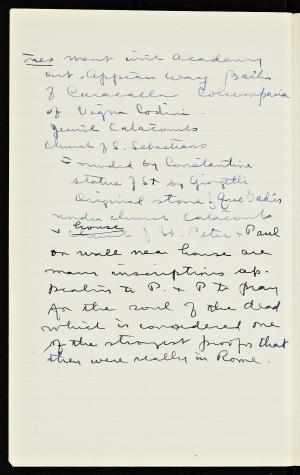 Tues went with Academy
out Appian Way Baths
of Caracalla Columbaria
of Vigna Codini.
Jewish Catacombs
Church of S. Sebastiano
founded by Constantine
statue of St by
Original stone of Quo Vadis
under church catacombs
+ house of St. Peter + Paul
on wall near house are
many inscriptions ap-
pealing to P. + P to pray
for the soul of the dead
which is considered one
of the strongest proofs that
they were really in Rome.